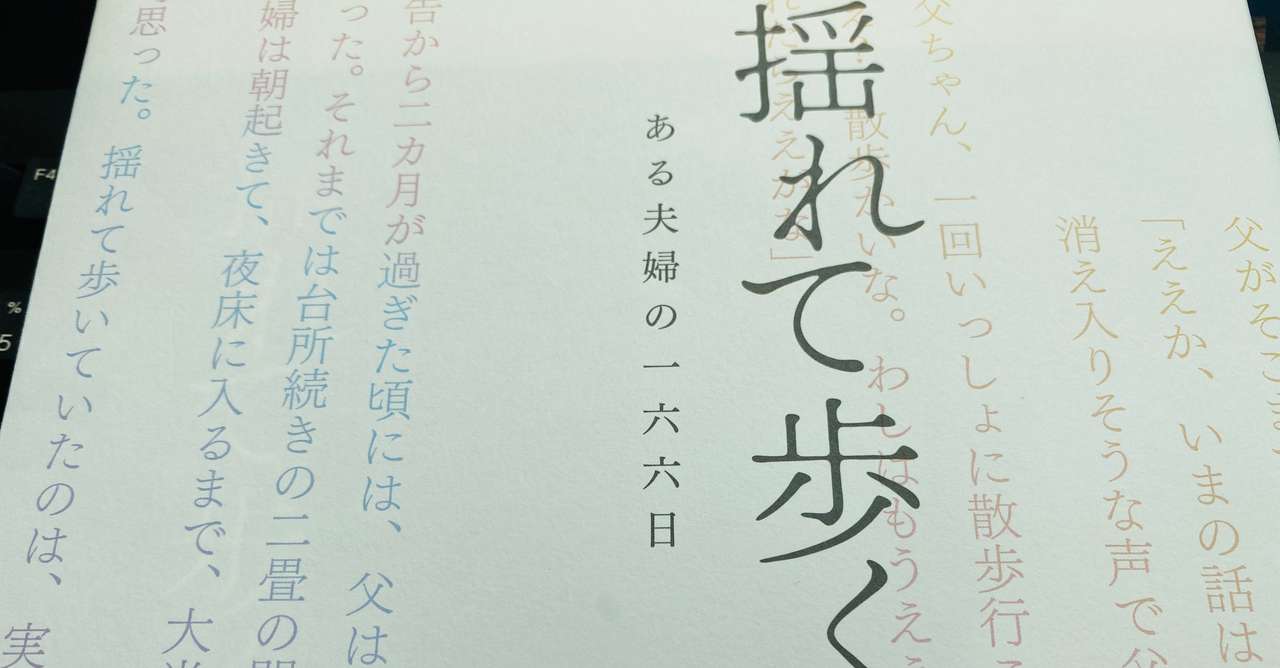 父がそこま
「ええか、いまの話は
消え入りそうな声で
父ちゃん、一回いっしょに散歩行こ
散歩かいな。わしはもうええ
れたらええがな」
揺れて歩く
ある夫婦の一六六日
告から二カ月が過ぎた頃には、父は
った。それまでは台所続きの二畳の間
婦は朝起きて、夜床に入るまで、大半
思った。揺れて歩いていたのは、実
F4
%
5